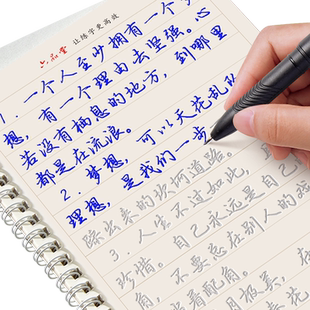 六品堂 让练字更高效
1. 一个人至少拥有一个
想,有一个理由去坚强。心
若没有栖息的地方,到哪里
都是在流浪。
2. 梦想,可以天花乱
理想,是我们一步
踩出来的坎坷道路。
3. 人生不过如此,
珍惜。自己永远是自己
角,不要总在别人的戏
着配角。
月极美,在
春花